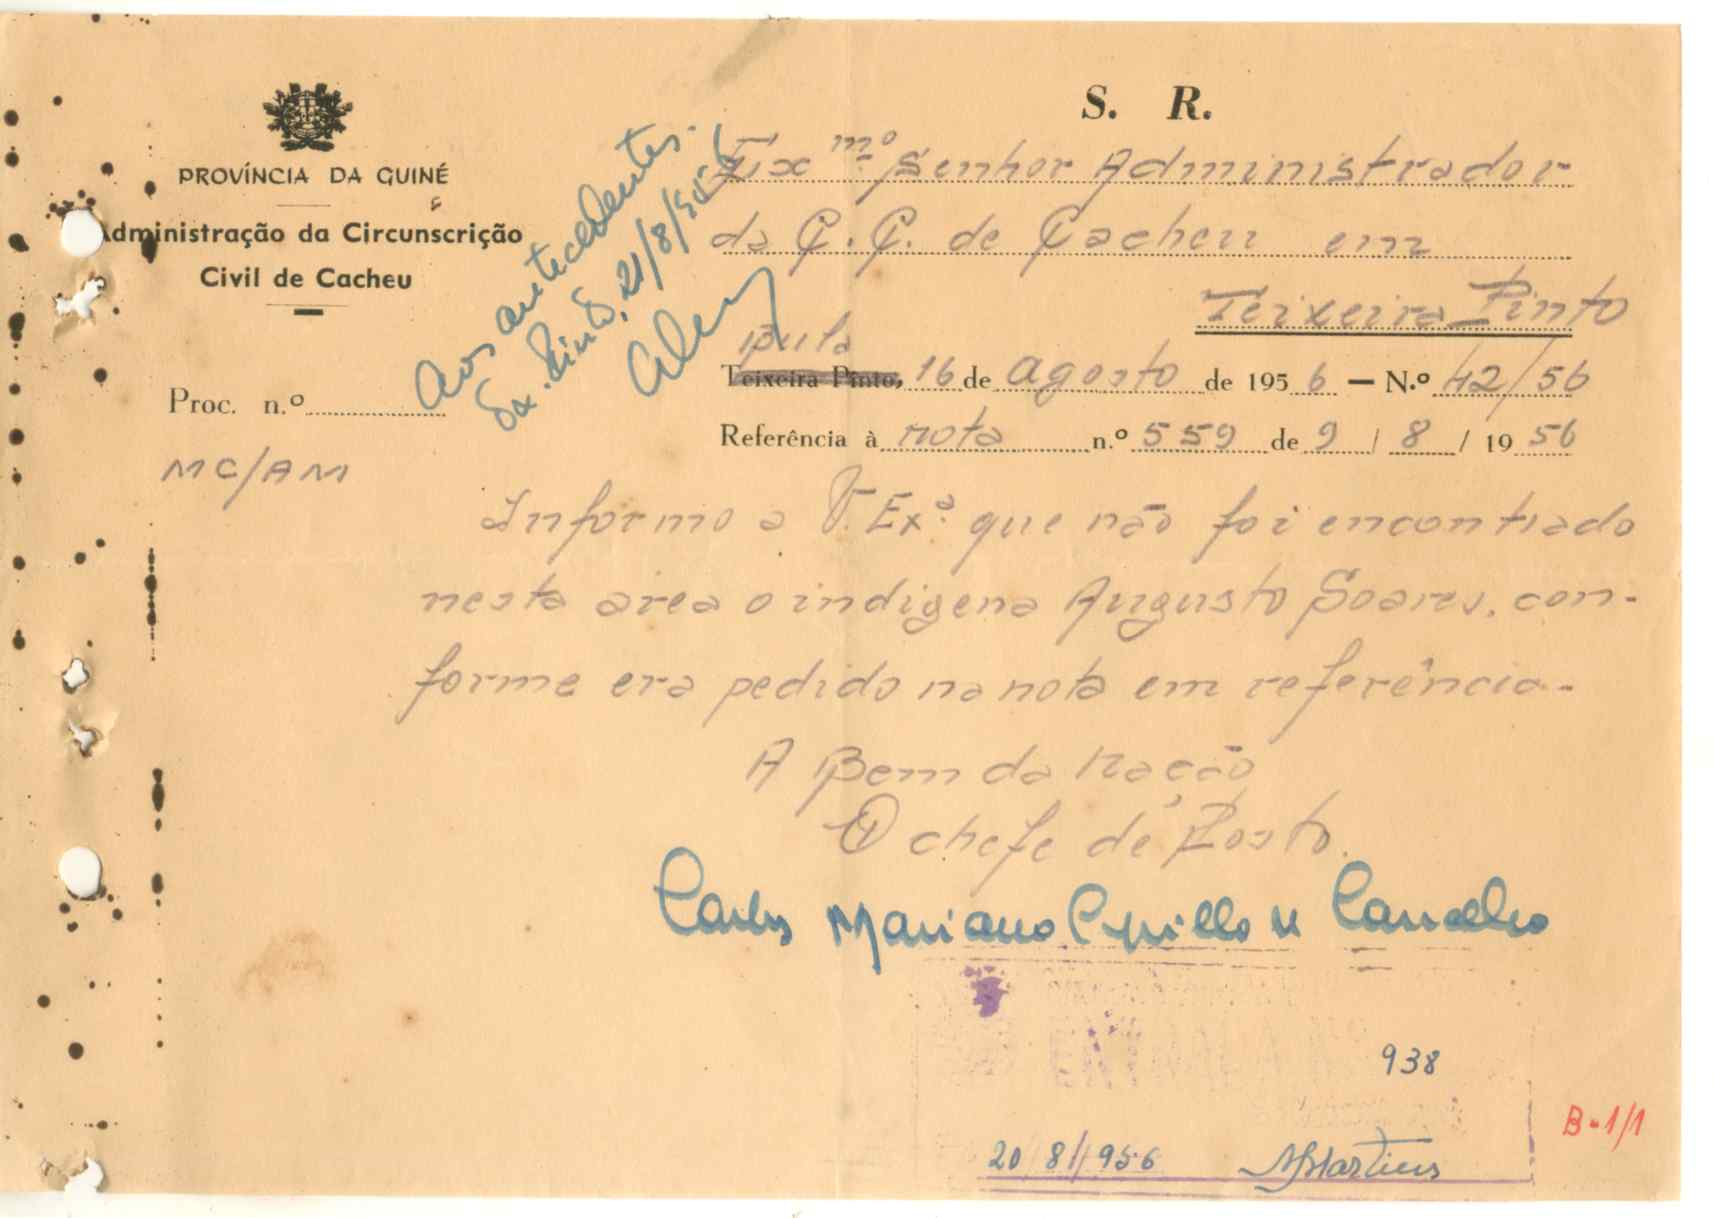 S. R.
PROVÍNCIA DA GUINÉ
Administração da Circunscrição
Civil de Cacheu
Aos antecedentes.
Pinto, 21/8/956
Exmº Senhor Administrador
da C. C. de Cacheu em
Teixeira Pinto
Bula
Teixeira Pinto, 16 de agosto de 1956 — N.º 42/56
Proc. n.º
Referência à nota n.º 559 de 9 / 8 / 1956
MC/AM
Informo a V. Exª. que não foi encontrado
nesta area o indigena Augusto Soares, con-
forme era pedido na nota em referência-
A Bem da Nação
O chefe de Posto.
Carlos Mariano Cyrillo Carvalho
ENTRADA
938
20/8/1956 Martins
B-1/1